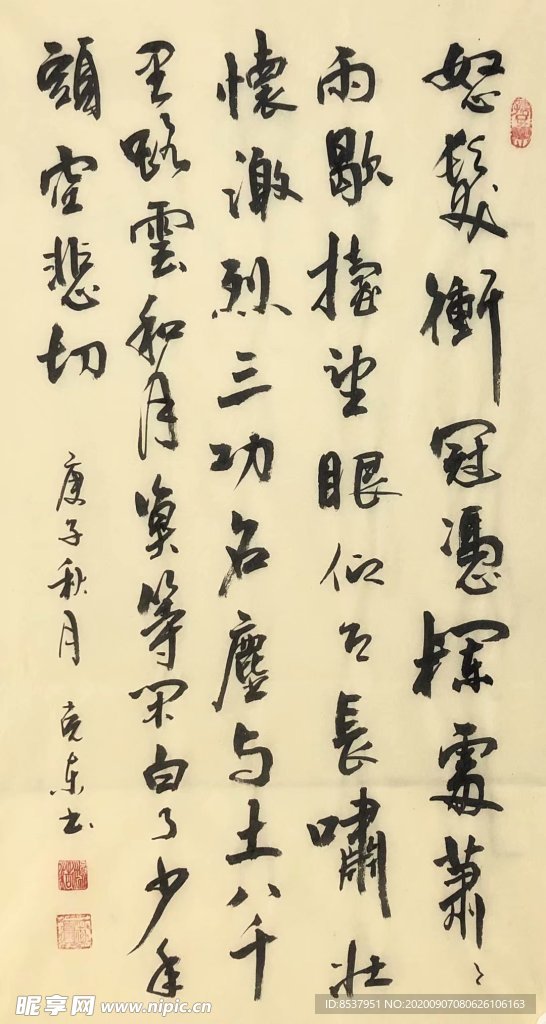 怒髮衝冠憑欄處蕭〻
雨歇擡望眼仰天長嘯壯
懷激烈三功名塵与土八千
里路雲和月莫等閑白了少年
頭空悲切
庚子秋月 克东书
昵享网 www.nipic.cn
ID:8537951 NO:20200907080626106163